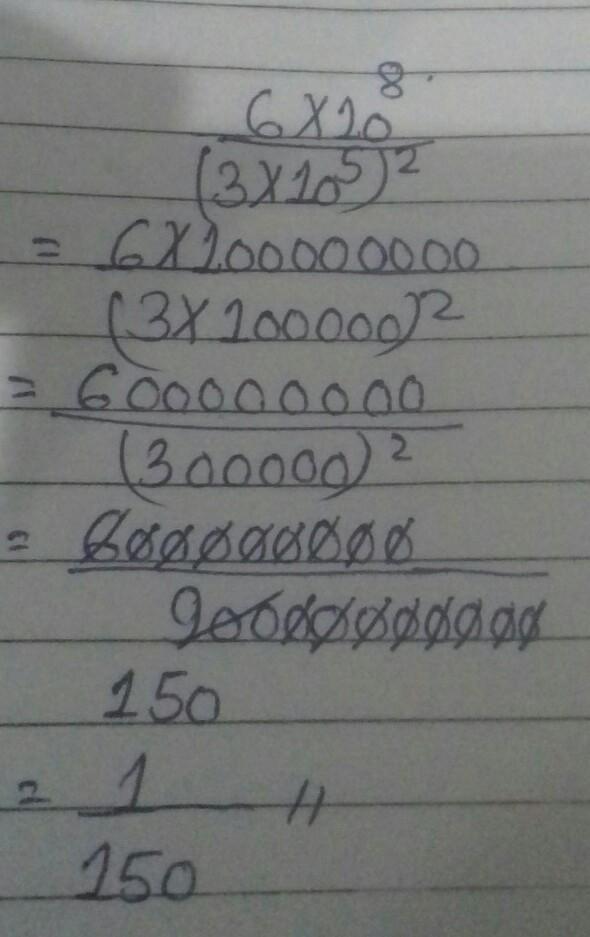 6 × 10⁸
(3 × 10⁵)²
= 6 × 100000000
(3 × 100000)²
= 600000000
(300000)²
= 600000000
90000000000
150
= 1 //
150